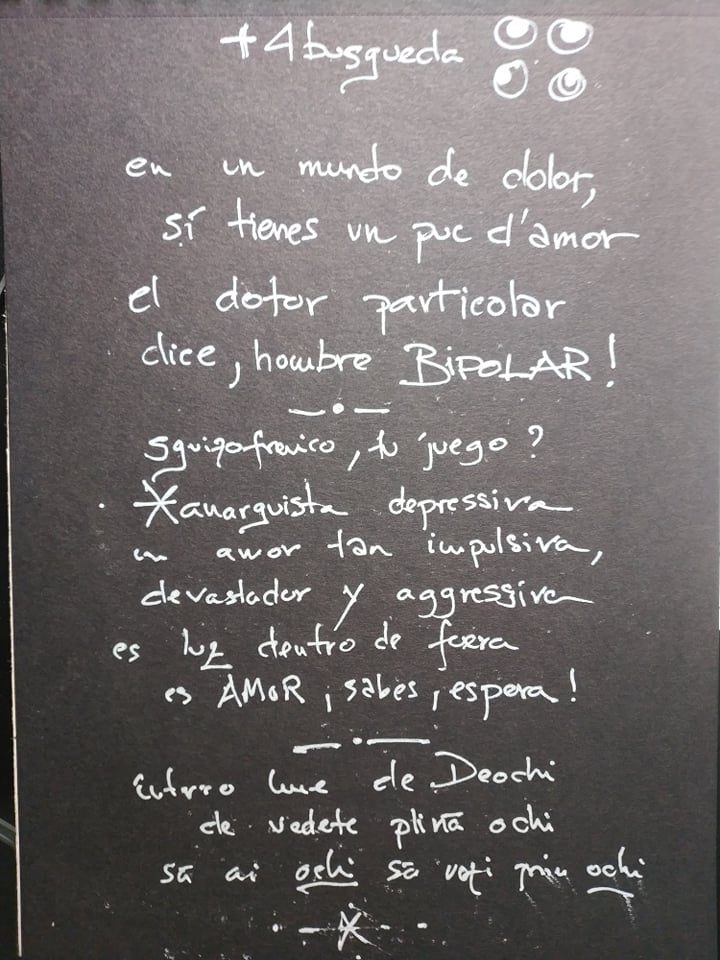 +4 busqueda
en un mundo de dolor,
sí tienes un puc d'amor
el dotor particolar
dice, hombre BIPOLAR!
sguizofrenico, tu juego?
anarquista depressiva
un amor tan impulsiva,
devastador y aggressiva
es luz dentro de fuera
es AMOR, sabes, espera!
lume de Deochi
de vedete plină ochi
să ai ochi să vezi prin ochi